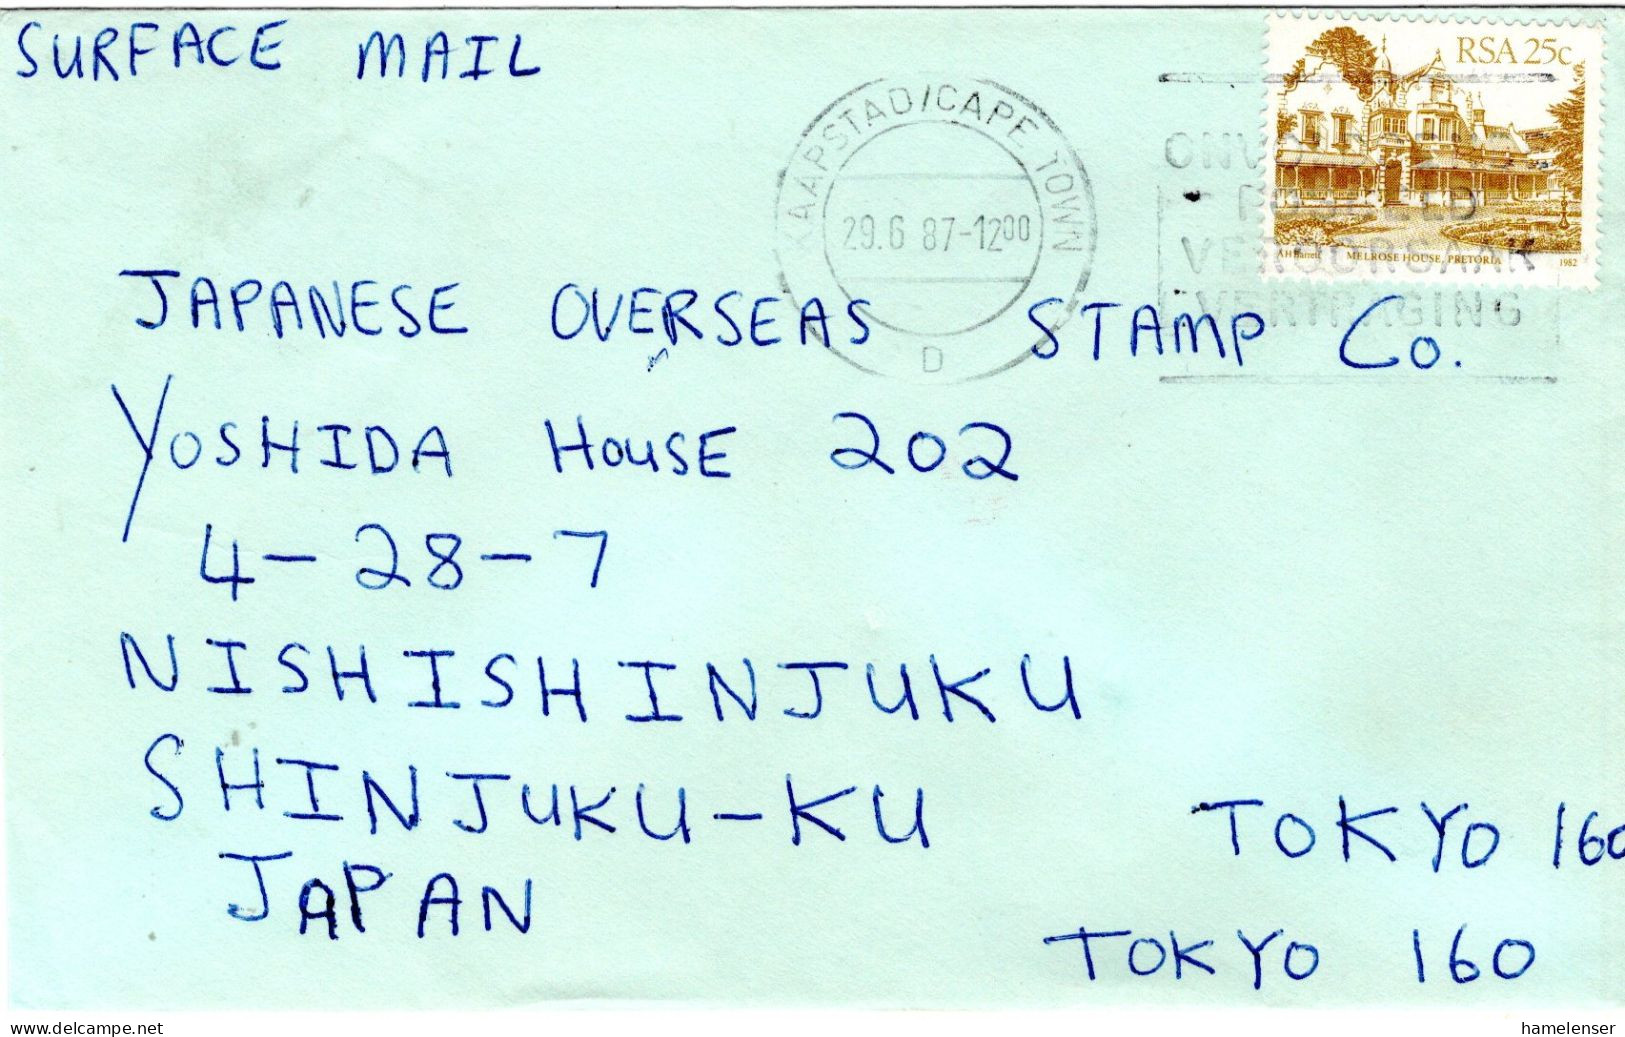 SURFACE MAIL
RSA 25c
KAAPSTAD/CAPE TOWN
29.6 87-12⁰⁰
D
POSGELD
VEROORSAAK
VERTRAGING
AH Barrett MELROSE HOUSE, PRETORIA 1982
JAPANESE OVERSEAS STAMP Co.
YOSHIDA HOUSE 202
4-28-7
NISHISHINJUKU
SHINJUKU-KU TOKYO 160
JAPAN
TOKYO 160
delcampe.net
hamelenser